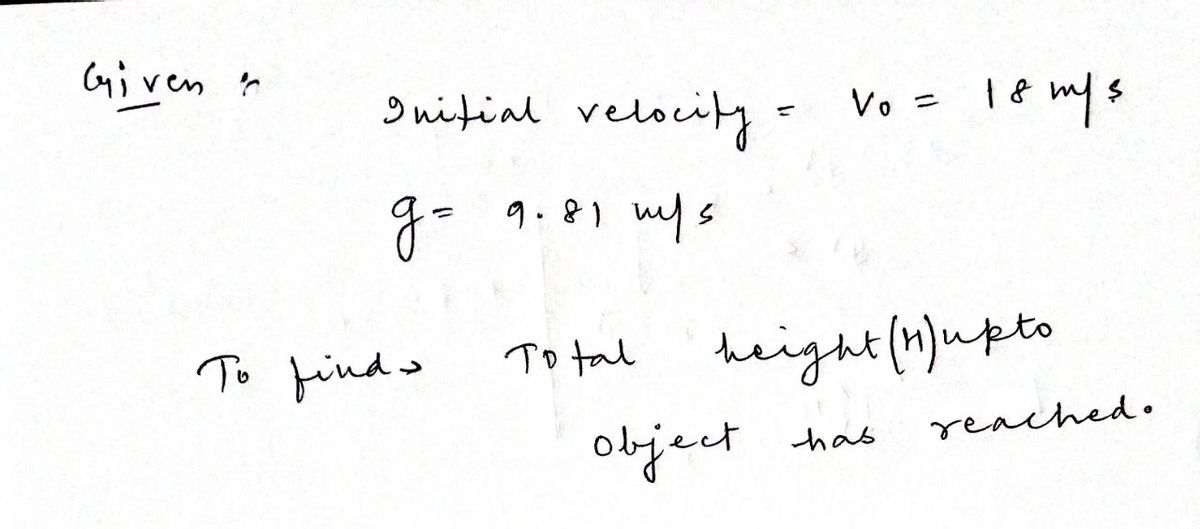 Given :-
Initial velocity = V₀ = 18 m/s
g = 9.81 m/s
To find → Total height (H) upto
object has reached.